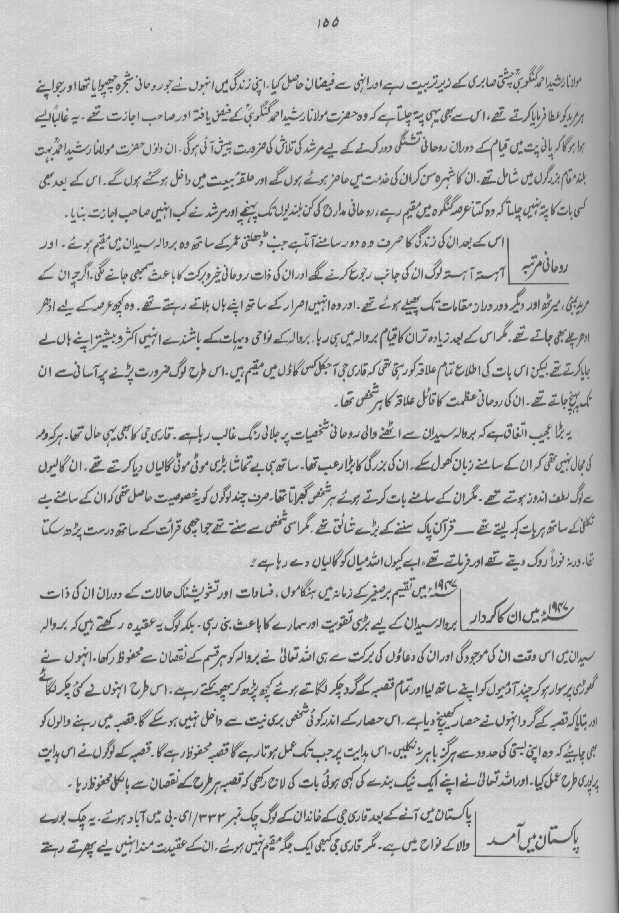 ۱۵۵
مولانا رشید احمد گنگوہیؒ چشتی صابری کے زیر تربیت رہے اور انہی سے فیضان حاصل کیا۔ اپنی زندگی میں انہوں نے جو روحانی شجرہ چھپوایا تھا اور جو اپنے
ہر مرید کو عطا فرمایا کرتے تھے، اس سے بھی یہی پتہ چلتا ہے کہ وہ حضرت مولانا رشید احمد گنگوہیؒ کے فیض یافتہ اور صاحب اجازت تھے۔ یہ غالباً ایسے
ہوا ہوگا کہ پانی پت میں قیام کے دوران روحانی تشنگی دور کرنے کے لیے مرشد کی تلاش کی ضرورت پیش آئی ہوگی۔ ان دنوں حضرت مولانا رشید احمدؒ بہت
بلند مقام بزرگوں میں شامل تھے۔ ان کا شہرہ سن کر ان کی خدمت میں حاضر ہوئے ہوں گے اور حلقہ بیعت میں داخل ہو گئے ہوں گے۔ اس کے بعد بھی
کسی بات کا پتہ نہیں چلتا کہ وہ کتنا عرصہ گنگوہ میں مقیم رہے، روحانی مدارج کی کن بلندیوں تک پہنچے اور مرشد نے کب انہیں صاحب اجازت بنایا۔
روحانی مرتبہ
اس کے بعد ان کی زندگی کا صرف وہ دور سامنے آتا ہے جب ڈھلتی عمر کے ساتھ وہ بروالہ سیدان میں مقیم ہوئے۔ اور
آہستہ آہستہ لوگ ان کی جانب رجوع کرنے لگے اور ان کی ذات روحانی خیر و برکت کا باعث سمجھی جانے لگی۔ اگرچہ ان کے
مرید بمبئی، میرٹھ اور دیگر دور دراز مقامات تک پھیلے ہوئے تھے۔ اور وہ انہیں اصرار کے ساتھ اپنے ہاں بلاتے رہتے تھے۔ وہ کچھ عرصہ کے لیے ادھر
ادھر چلے بھی جاتے تھے۔ مگر اس کے بعد زیادہ تر ان کا قیام بروالہ میں ہی رہا۔ بروالہ کے نواحی دیہات کے باشندے انہیں اکثر و بیشتر اپنے ہاں لے
جایا کرتے تھے لیکن اس بات کی اطلاع تمام علاقہ کو رہتی تھی کہ قاری جی آجکل کس گاؤں میں مقیم ہیں۔ اس طرح لوگ ضرورت پڑنے پر آسانی سے ان
تک پہنچ جاتے تھے۔ ان کی روحانی عظمت کا قائل علاقہ کا ہر شخص تھا۔
یہ بڑا عجیب اتفاق ہے کہ بروالہ سیدان سے اٹھنے والی روحانی شخصیات پر جلالی رنگ غالب رہا ہے۔ قاری جی کا بھی یہی حال تھا۔ ہر کہ ومہ
کی مجال نہیں تھی کہ ان کے سامنے زبان کھول سکے۔ ان کی بزرگی کا بڑا رعب تھا۔ ساتھ ہی بے تحاشا بڑی موٹی موٹی گالیاں دیا کرتے تھے۔ ان گالیوں
سے لوگ لطف اندوز ہوتے تھے۔ مگر ان کے سامنے بات کرتے ہوئے ہر شخص گھبراتا تھا۔ صرف چند لوگوں کو یہ خصوصیت حاصل تھی کہ ان کے سامنے بے
تکلفی کے ساتھ ہر بات کہہ لیتے تھے ۔ قرآن پاک سننے کے بڑے شائق تھے۔ مگر اسی شخص سے سنتے تھے جو اچھی قرأت کے ساتھ درست پڑھ سکتا
تھا۔ ورنہ فوراً روک دیتے تھے اور فرماتے تھے "ابے کیوں اللہ میاں کو گالیاں دے رہا ہے"۔
۱۹۴۷ء میں ان کا کردار
۱۹۴۷ء میں تقسیم برصغیر کے زمانہ میں ہنگاموں، فسادات اور تشویشناک حالات کے دوران ان کی ذات
بروالہ سیدان کے لیے بڑی تقویت اور سہارے کا باعث بنی رہی۔ بلکہ لوگ یہ عقیدہ رکھتے ہیں کہ بروالہ
سیدان میں اس وقت ان کی موجودگی اور ان کی دعاؤں کی برکت سے ہی اللہ تعالیٰ نے بروالہ کو ہر قسم کے نقصان سے محفوظ رکھا۔ انہوں نے
گھوڑی پر سوار ہو کر چند آدمیوں کو اپنے ساتھ لیا اور تمام قصبہ کے گرد چکر لگاتے ہوئے کچھ پڑھ کر پھونکتے رہے۔ اس طرح انہوں نے کئی چکر لگائے
اور بتایا کہ قصبہ کے گرد انہوں نے حصار کھینچ دیا ہے۔ اس حصار کے اندر کوئی شخص بری نیت سے داخل نہیں ہو سکے گا۔ قصبہ میں رہنے والوں کو
بھی چاہیئے کہ وہ اپنی بستی کی حدود سے ہرگز باہر نہ نکلیں۔ اس ہدایت پر جب تک عمل ہوتا رہے گا قصبہ محفوظ رہے گا۔ قصبہ کے لوگوں نے اس ہدایت
پر پوری طرح عمل کیا۔ اور اللہ تعالیٰ نے اپنے ایک نیک بندے کی کہی ہوئی بات کی لاج رکھی کہ قصبہ ہر طرح کے نقصان سے بالکل محفوظ رہا۔
پاکستان میں آمد
پاکستان میں آنے کے بعد قاری جی کے خاندان کے لوگ چک نمبر ۳۳۲/ای۔بی میں آباد ہوئے۔ یہ چک بورے
والا کے نواح میں ہے۔ مگر قاری جی کبھی ایک جگہ مقیم نہیں ہوئے۔ ان کے عقیدت مند انہیں لیے پھرتے رہتے